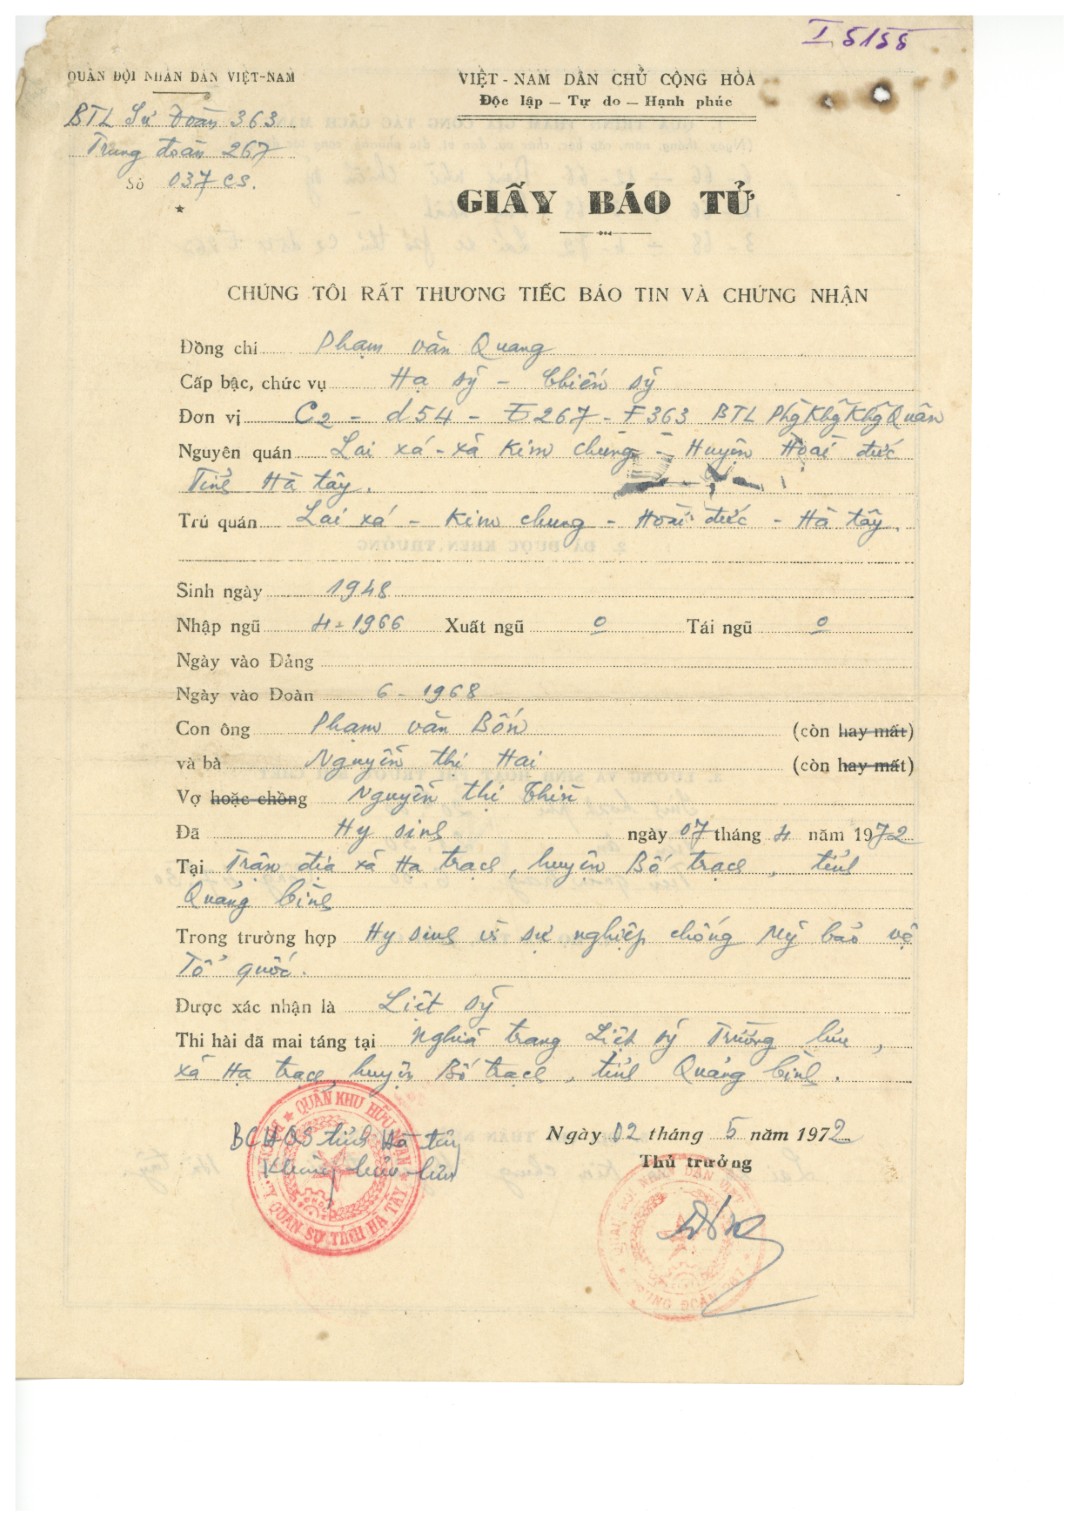 I 5155
QUÂN ĐỘI NHÂN DÂN VIỆT-NAM
BTL Sư Đoàn 363
Trung đoàn 267
Số 037 CS.
VIỆT-NAM DÂN CHỦ CỘNG HÒA
Độc lập — Tự do — Hạnh phúc
GIẤY BÁO TỬ
CHÚNG TÔI RẤT THƯƠNG TIẾC BÁO TIN VÀ CHỨNG NHẬN
Đồng chí Phạm văn Quang
Cấp bậc, chức vụ Hạ sỹ - Chiến sỹ
Đơn vị C2 - d54 - E267 - F363 BTL Phg Khg Khg Quân
Nguyên quán Lai xá - xã Kim chung - Huyện Hoài đức
Tỉnh Hà tây.
Trú quán Lai xá - Kim chung - Hoài đức - Hà tây.
Sinh ngày 1948
Nhập ngũ 4-1966 Xuất ngũ 0 Tái ngũ 0
Ngày vào Đảng
Ngày vào Đoàn 6-1968
Con ông Phạm văn Bốn (còn hay mất)
và bà Nguyễn thị Hai (còn hay mất)
Vợ hoặc chồng Nguyễn thị Thìn
Đã Hy sinh ngày 07 tháng 4 năm 1972
Tại Trận địa xã Hạ trạch, huyện Bố trạch, tỉnh
Quảng bình
Trong trường hợp Hy sinh vì sự nghiệp chống Mỹ bảo vệ
Tổ quốc.
Được xác nhận là Liệt sỹ
Thi hài đã mai táng tại Nghĩa trang Liệt sỹ Trường lưu,
xã Hạ trạch, huyện Bố trạch, tỉnh Quảng bình.
BCHQS tỉnh Hà tây
Ngày 02 tháng 5 năm 1972
Thủ trưởng
QUÂN KHU HỮU NGẠN
QUÂN SỰ TỈNH HÀ TÂY